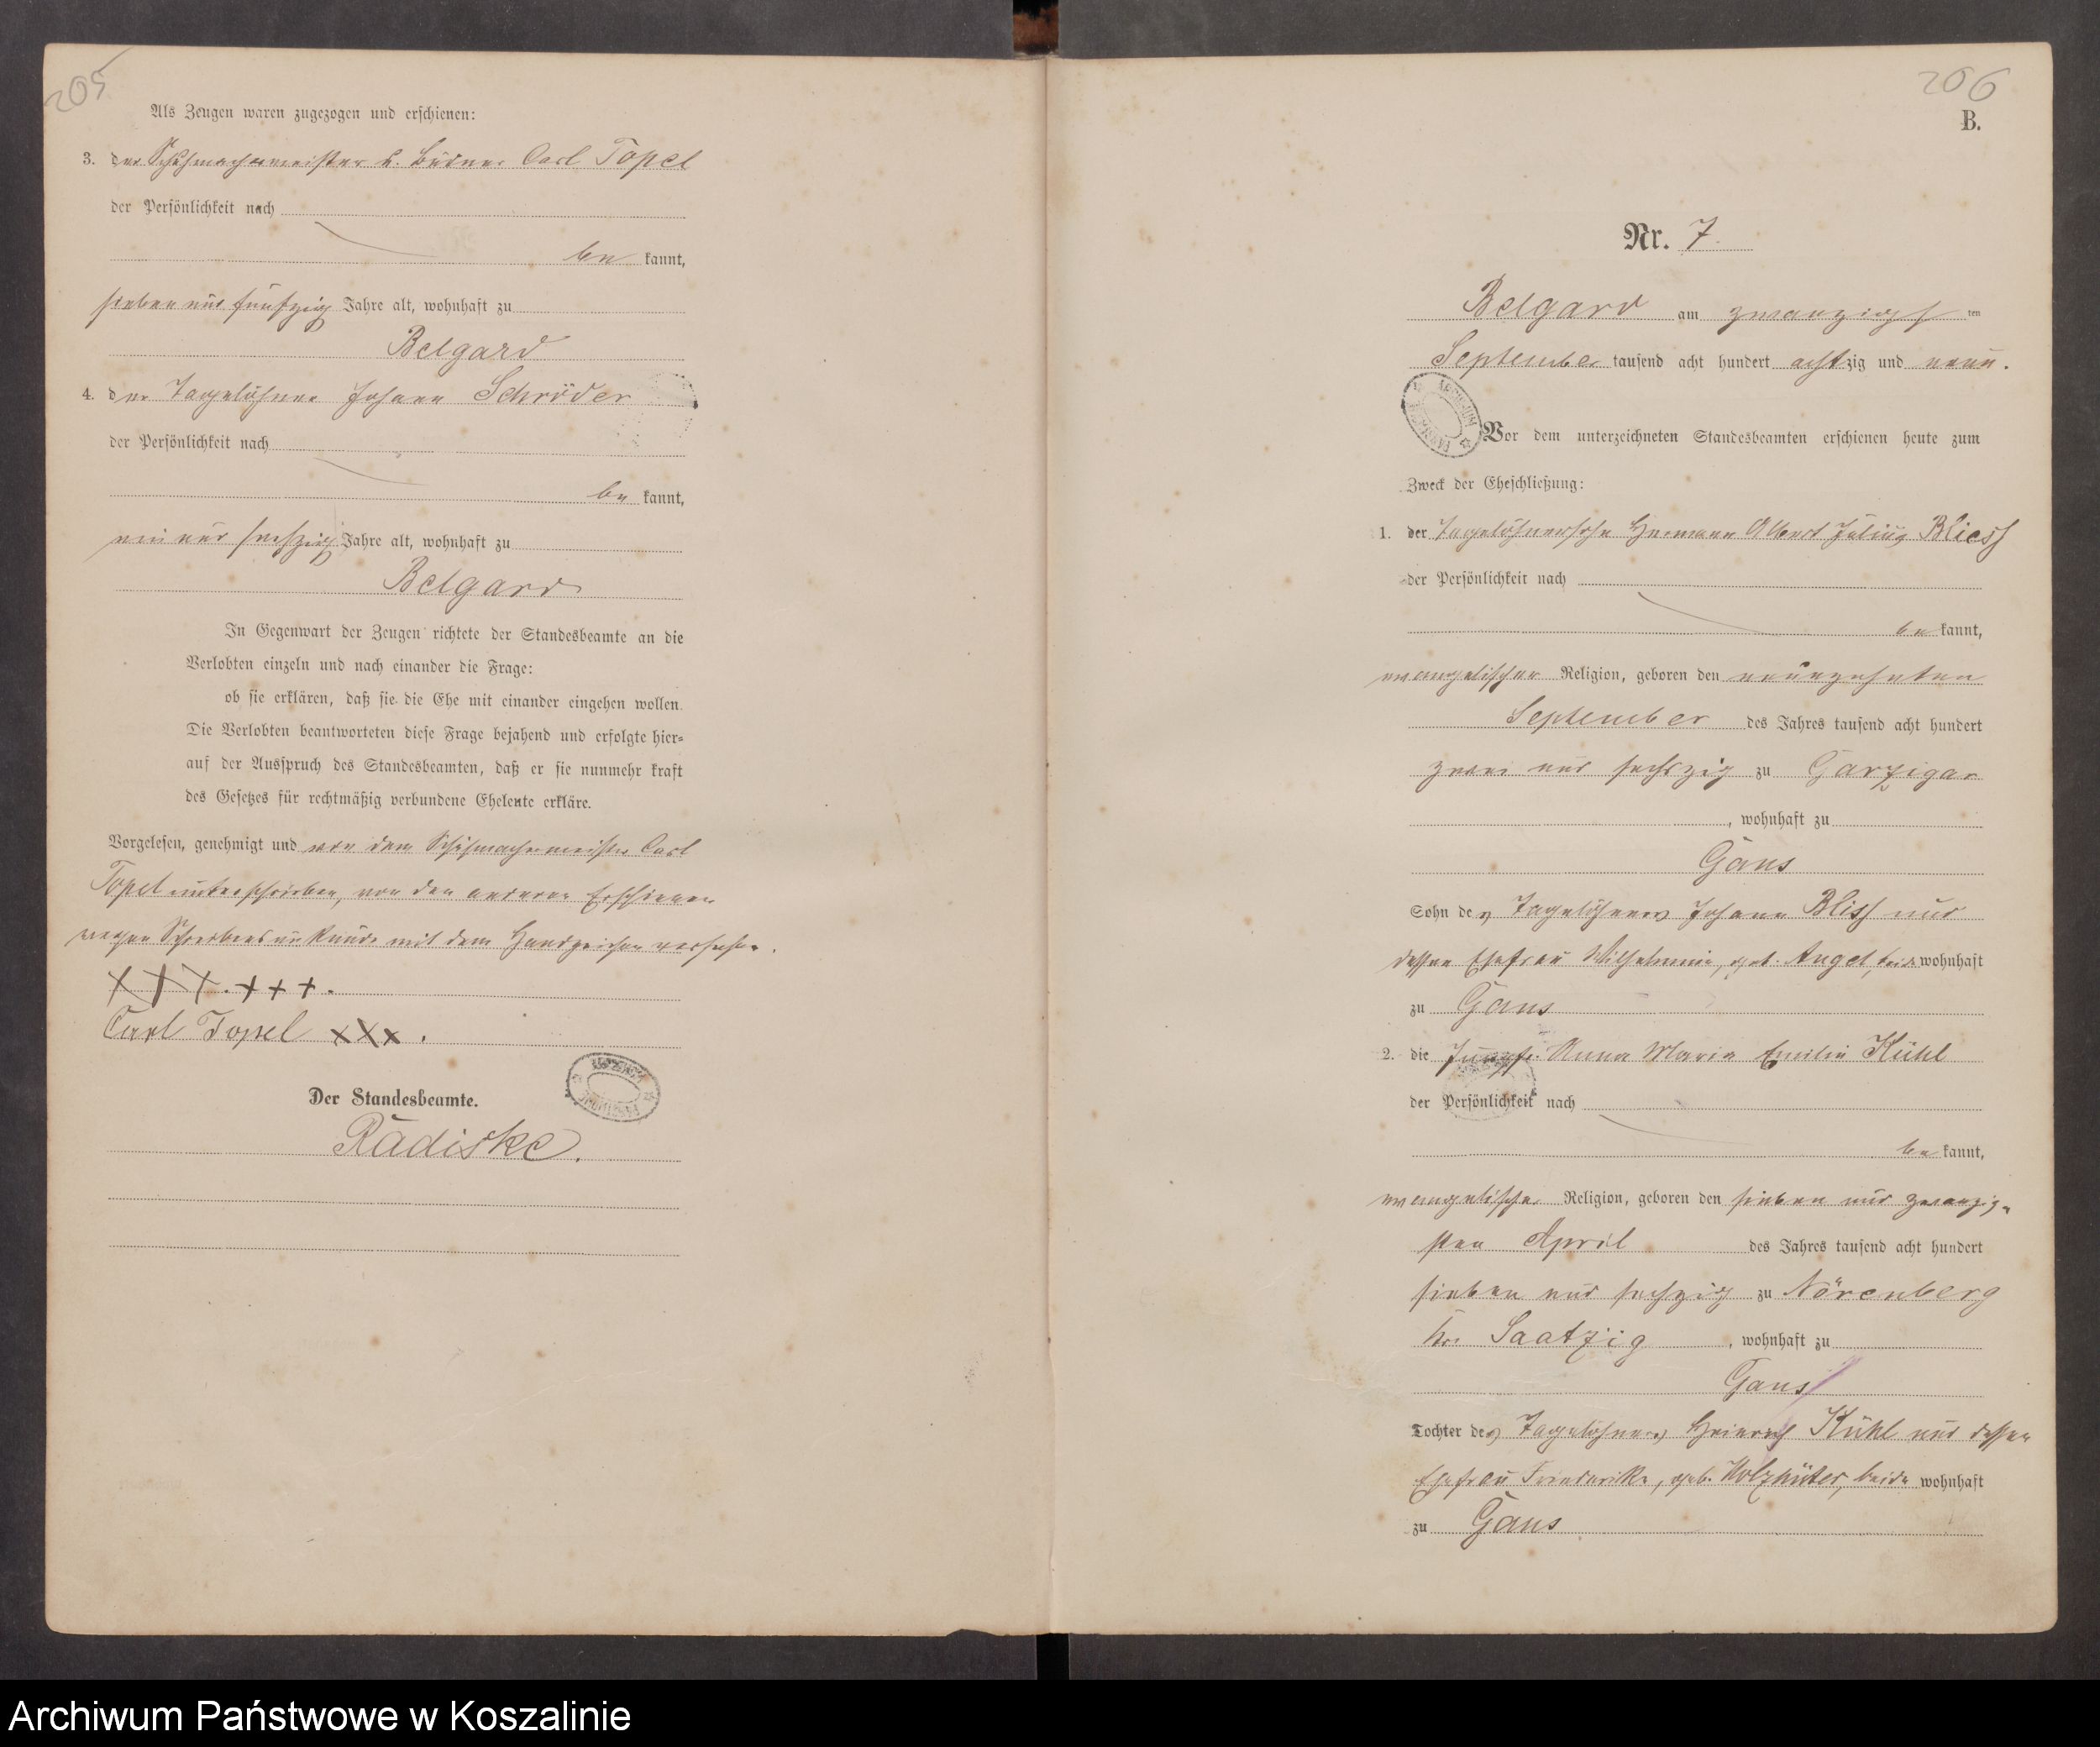 205
Als Zeugen waren zugezogen und erschienen:
3. der Schuhmachermeister u. Büdner Carl Topel
der Persönlichkeit nach
be kannt,
sieben und fünfzig Jahre alt, wohnhaft zu
Belgard
4. der Tagelöhner Johann Schröder
der Persönlichkeit nach
be kannt,
ein und sechszig Jahre alt, wohnhaft zu
Belgard
In Gegenwart der Zeugen richtete der Standesbeamte an die
Verlobten einzeln und nach einander die Frage:
ob sie erklären, daß sie die Ehe mit einander eingehen wollen.
Die Verlobten beantworteten diese Frage bejahend und erfolgte hier=
auf der Ausspruch des Standesbeamten, daß er sie nunmehr kraft
des Gesetzes für rechtmäßig verbundene Eheleute erkläre.
Vorgelesen, genehmigt und von dem Schuhmachermeister Carl
Topel unterschrieben, von den anderen
wegen Schreibensunkunde mit dem Handzeichen versehen.
XXX. +++.
Carl Topel XXX.
Der Standesbeamte.
Radiske.
206
B.
Nr. 7.
Belgard am zwanzigsten
September tausend acht hundert achtzig und neun.
Vor dem unterzeichneten Standesbeamten erschienen heute zum
Zweck der Eheschließung:
1. der Tagelöhnersohn Hermann Albert Julius Bliess
der Persönlichkeit nach
be kannt,
evangelischer Religion, geboren den neunzehnten
September des Jahres tausend acht hundert
zwei und sechszig zu Garzigar
, wohnhaft zu
Gans
Sohn des Tagelöhners Johann Bliss und
dessen Ehefrau Wilhelmine, geb. Angel, beide wohnhaft
zu Gans
2. die Jungfr. Anna Maria Emilie Kühl
der Persönlichkeit nach
be kannt,
evangelischer Religion, geboren den sieben und zwanzig-
sten April des Jahres tausend acht hundert
sieben und sechzig zu Nörenberg
Krs Saatzig, wohnhaft zu
Gans
Tochter des Tagelöhners Heinrich Kühl und dessen
Ehefrau Friederike, geb. Holzhüter, beide wohnhaft
zu Gans
Archiwum Państwowe w Koszalinie